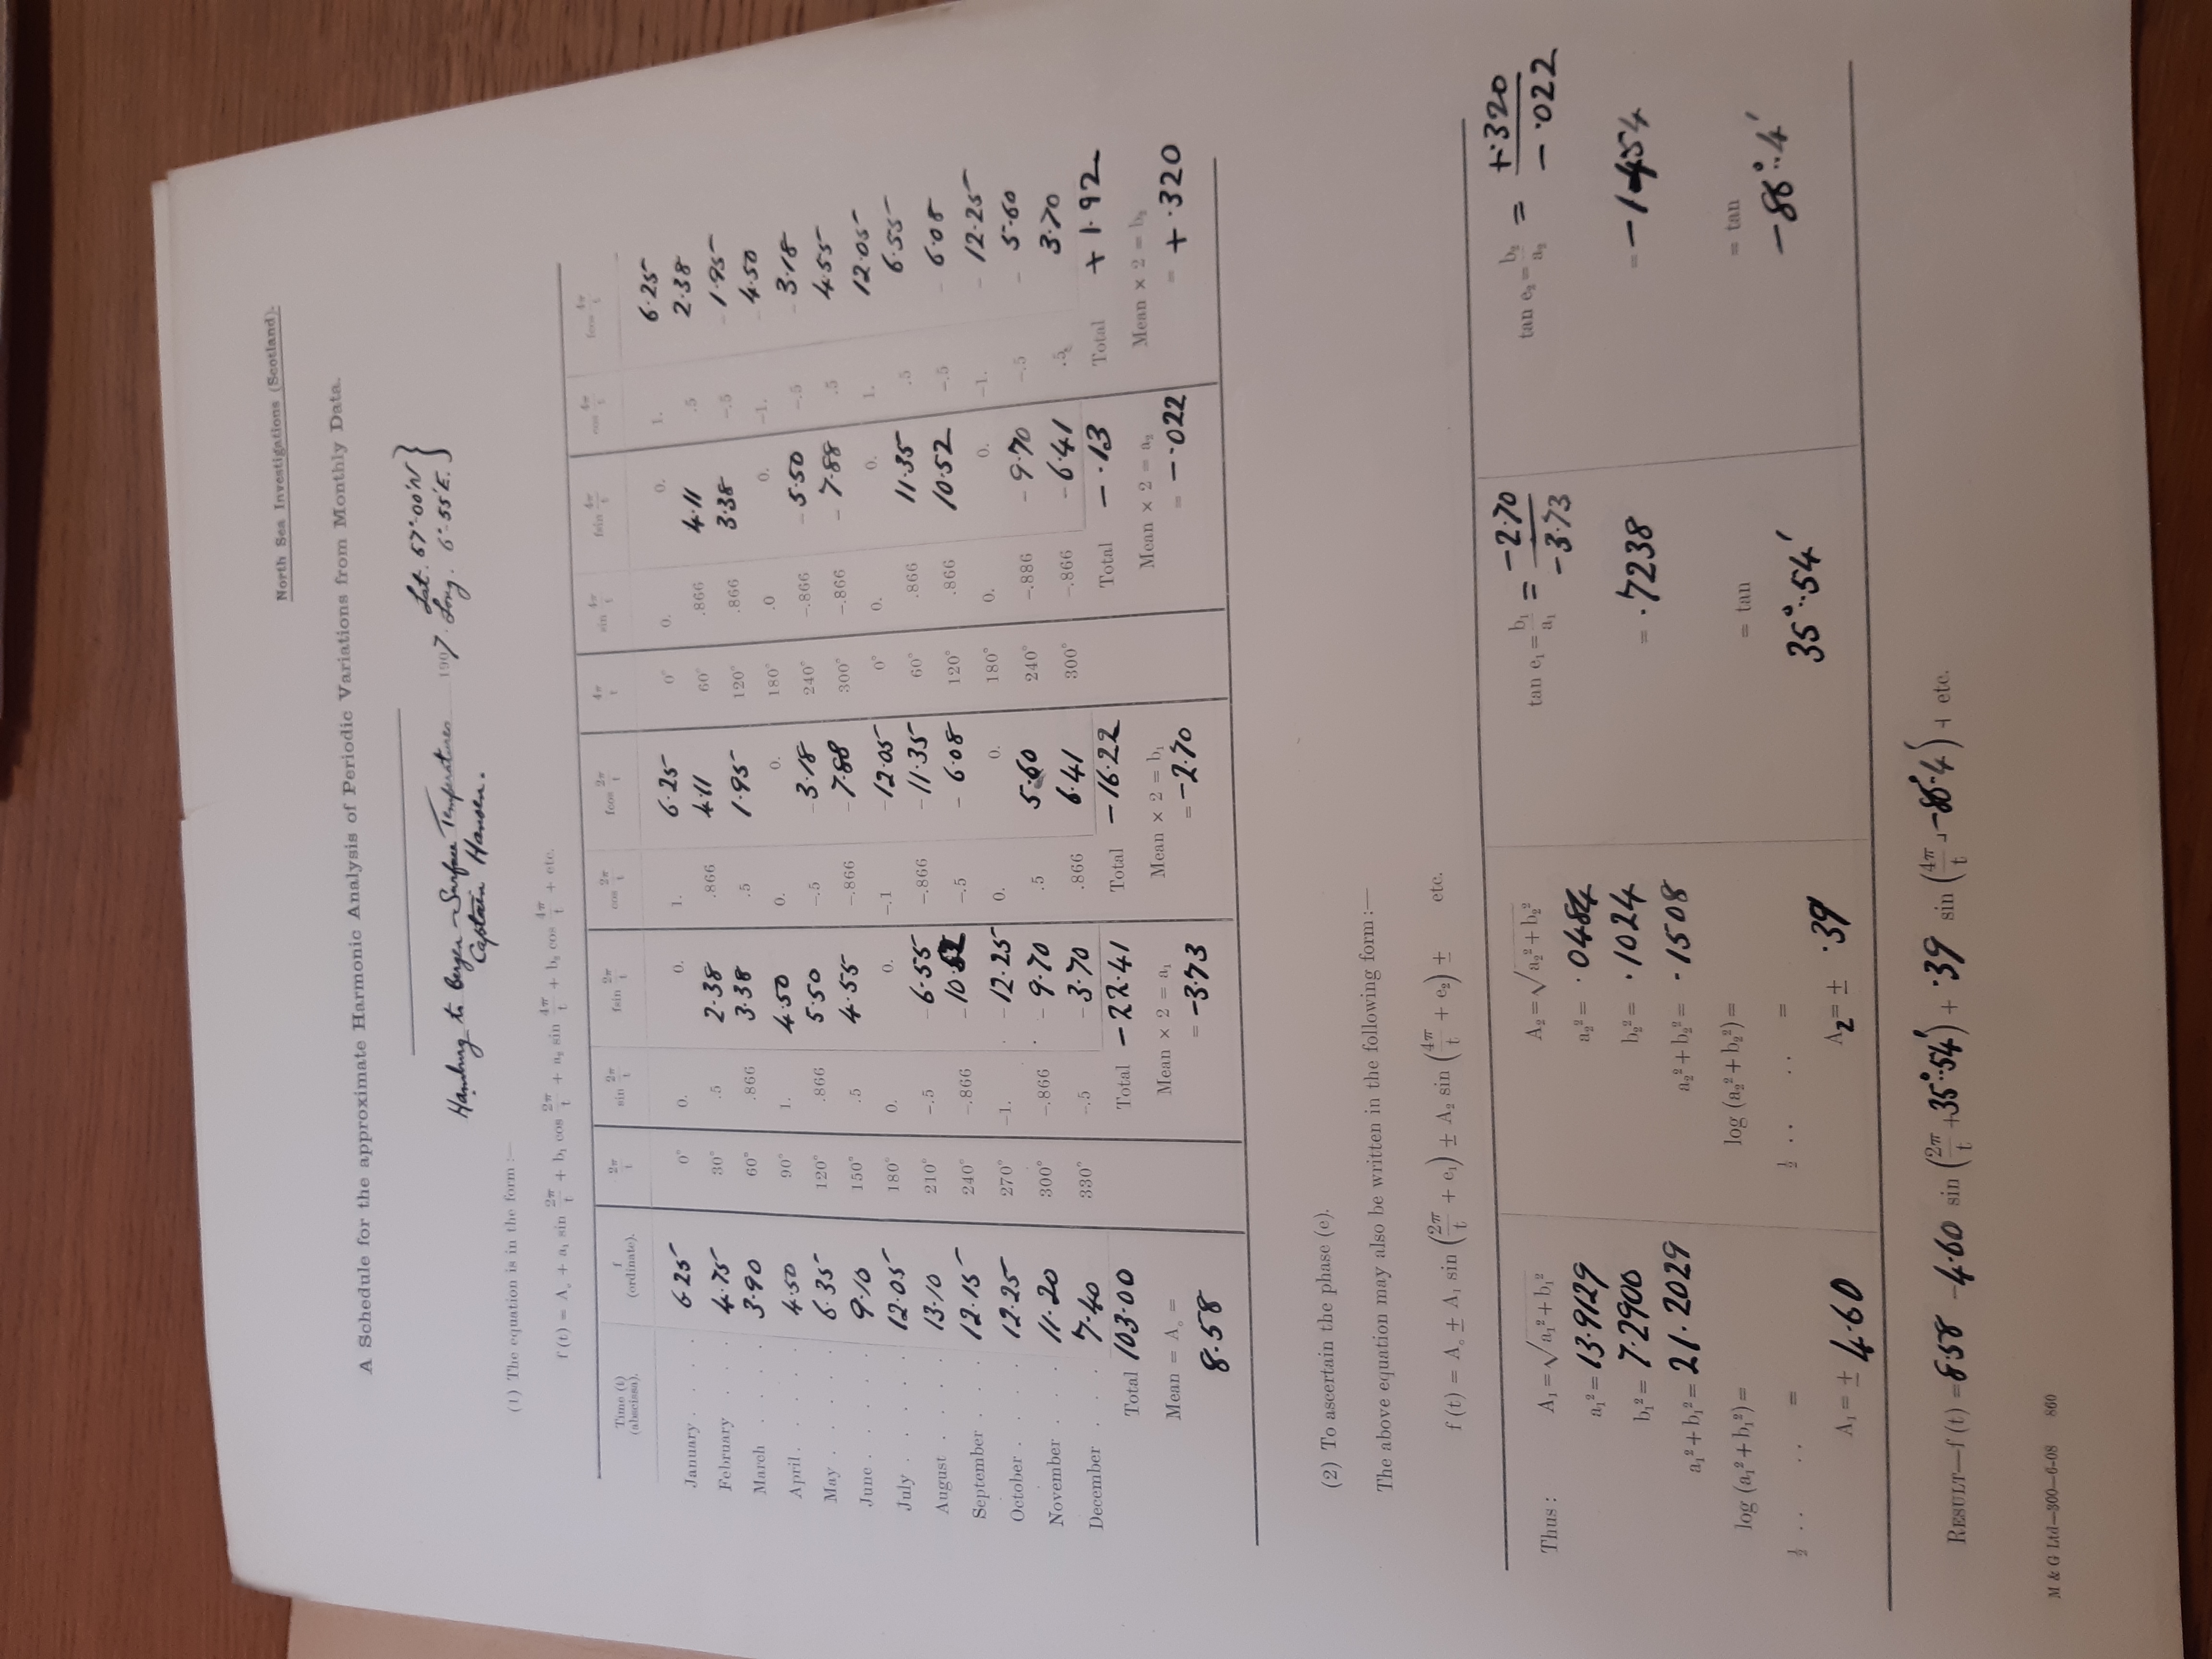 North Sea Investigations (Scotland).
A Schedule for the approximate Harmonic Analysis of Periodic Variations from Monthly Data.
Hamburg to Bergen – Surface Temperatures 1907. Lat. 57°-00'N } Long. 6°-55'E.
Captain Hansen.
(1) The equation is in the form :—
f (t) = A₀ + a₁ sin 2π/t + b₁ cos 2π/t + a₂ sin 4π/t + b₂ cos 4π/t + etc.
Time (t) (abscissa). f (ordinate). 2π/t sin 2π/t fsin 2π/t cos 2π/t fcos 2π/t 4π/t sin 4π/t fsin 4π/t cos 4π/t fcos 4π/t
January . . . . 6 25 0° 0. 0. 1. 6·25 0° 0. 0. 1. 6·25
February . . . 4·75 30° .5 2·38 .866 4·11 60° .866 4·11 .5 2·38
March . . . . 3·90 60° .866 3·38 .5 1·95 120° .866 3·38 –.5 – 1·95
April . . . . . 4·50 90° 1. 4·50 0. 0. 180° .0 0. –1. – 4·50
May . . . . . 6·35 120° .866 5·50 –.5 – 3·18 240° –.866 – 5·50 –.5 – 3·18
June . . . . . 9·10 150° .5 4·55 –.866 – 7·88 300° –.866 – 7·88 .5 4·55
July . . . . . 12·05 180° 0. 0. –.1 –12·05 0° 0. 0. 1. 12·05
August . . . . 13·10 210° –.5 – 6·55 –.866 –11·35 60° .866 11·35 .5 6·55
September . . . 12·15 240° –.866 –10·52 –.5 – 6·08 120° .866 10·52 –.5 – 6·08
October . . . . 12·25 270° –1. –12·25 0. 0. 180° 0. 0. –1. – 12·25
November . . . 11·20 300° –.866 – 9·70 .5 5·60 240° –.886 – 9·70 –.5 – 5·60
December . . . 7·40 330° –.5 – 3·70 .866 6·41 300° –.866 – 6·41 .5 3·70
Total 103·00 Total –22·41 Total –16·22 Total – ·13 Total + 1·92
Mean = A₀ = Mean × 2 = a₁ Mean × 2 = b₁ Mean × 2 = a₂ Mean × 2 = b₂
8·58 = –3·73 = –2·70 = –·022 = + ·320
(2) To ascertain the phase (e).
The above equation may also be written in the following form :—
f (t) = A₀ ± A₁ sin (2π/t + e₁) ± A₂ sin (4π/t + e₂) ± etc.
Thus : A₁ = √a₁² + b₁² A₂ = √a₂² + b₂² tan e₁ = b₁/a₁ = –2·70/–3·73 tan e₂ = b₂/a₂ = +·320/– ·022
a₁² = 13·9129 a₂² = ·0484
b₁² = 7·2900 b₂² = ·1024 = ·7238
a₁² + b₁² = 21·2029 a₂² + b₂² = ·1508
log (a₁² + b₁²) = log (a₂² + b₂²) = = tan = tan
½ . . . . = ½ . . . . = 35°·54'
A₁ = ± 4·60 A₂ = ± ·39
RESULT—f (t) = 8·58 –4·60 sin (2π/t + 35°·54') + ·39 sin (4π/t + etc.
M & G Ltd—300—6-08 860